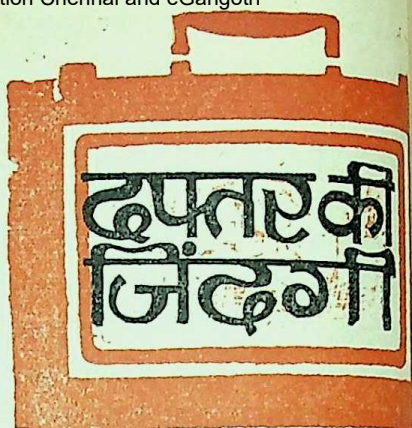 tion Chennai and eGangotri
दफ्तर की
जिंदगी